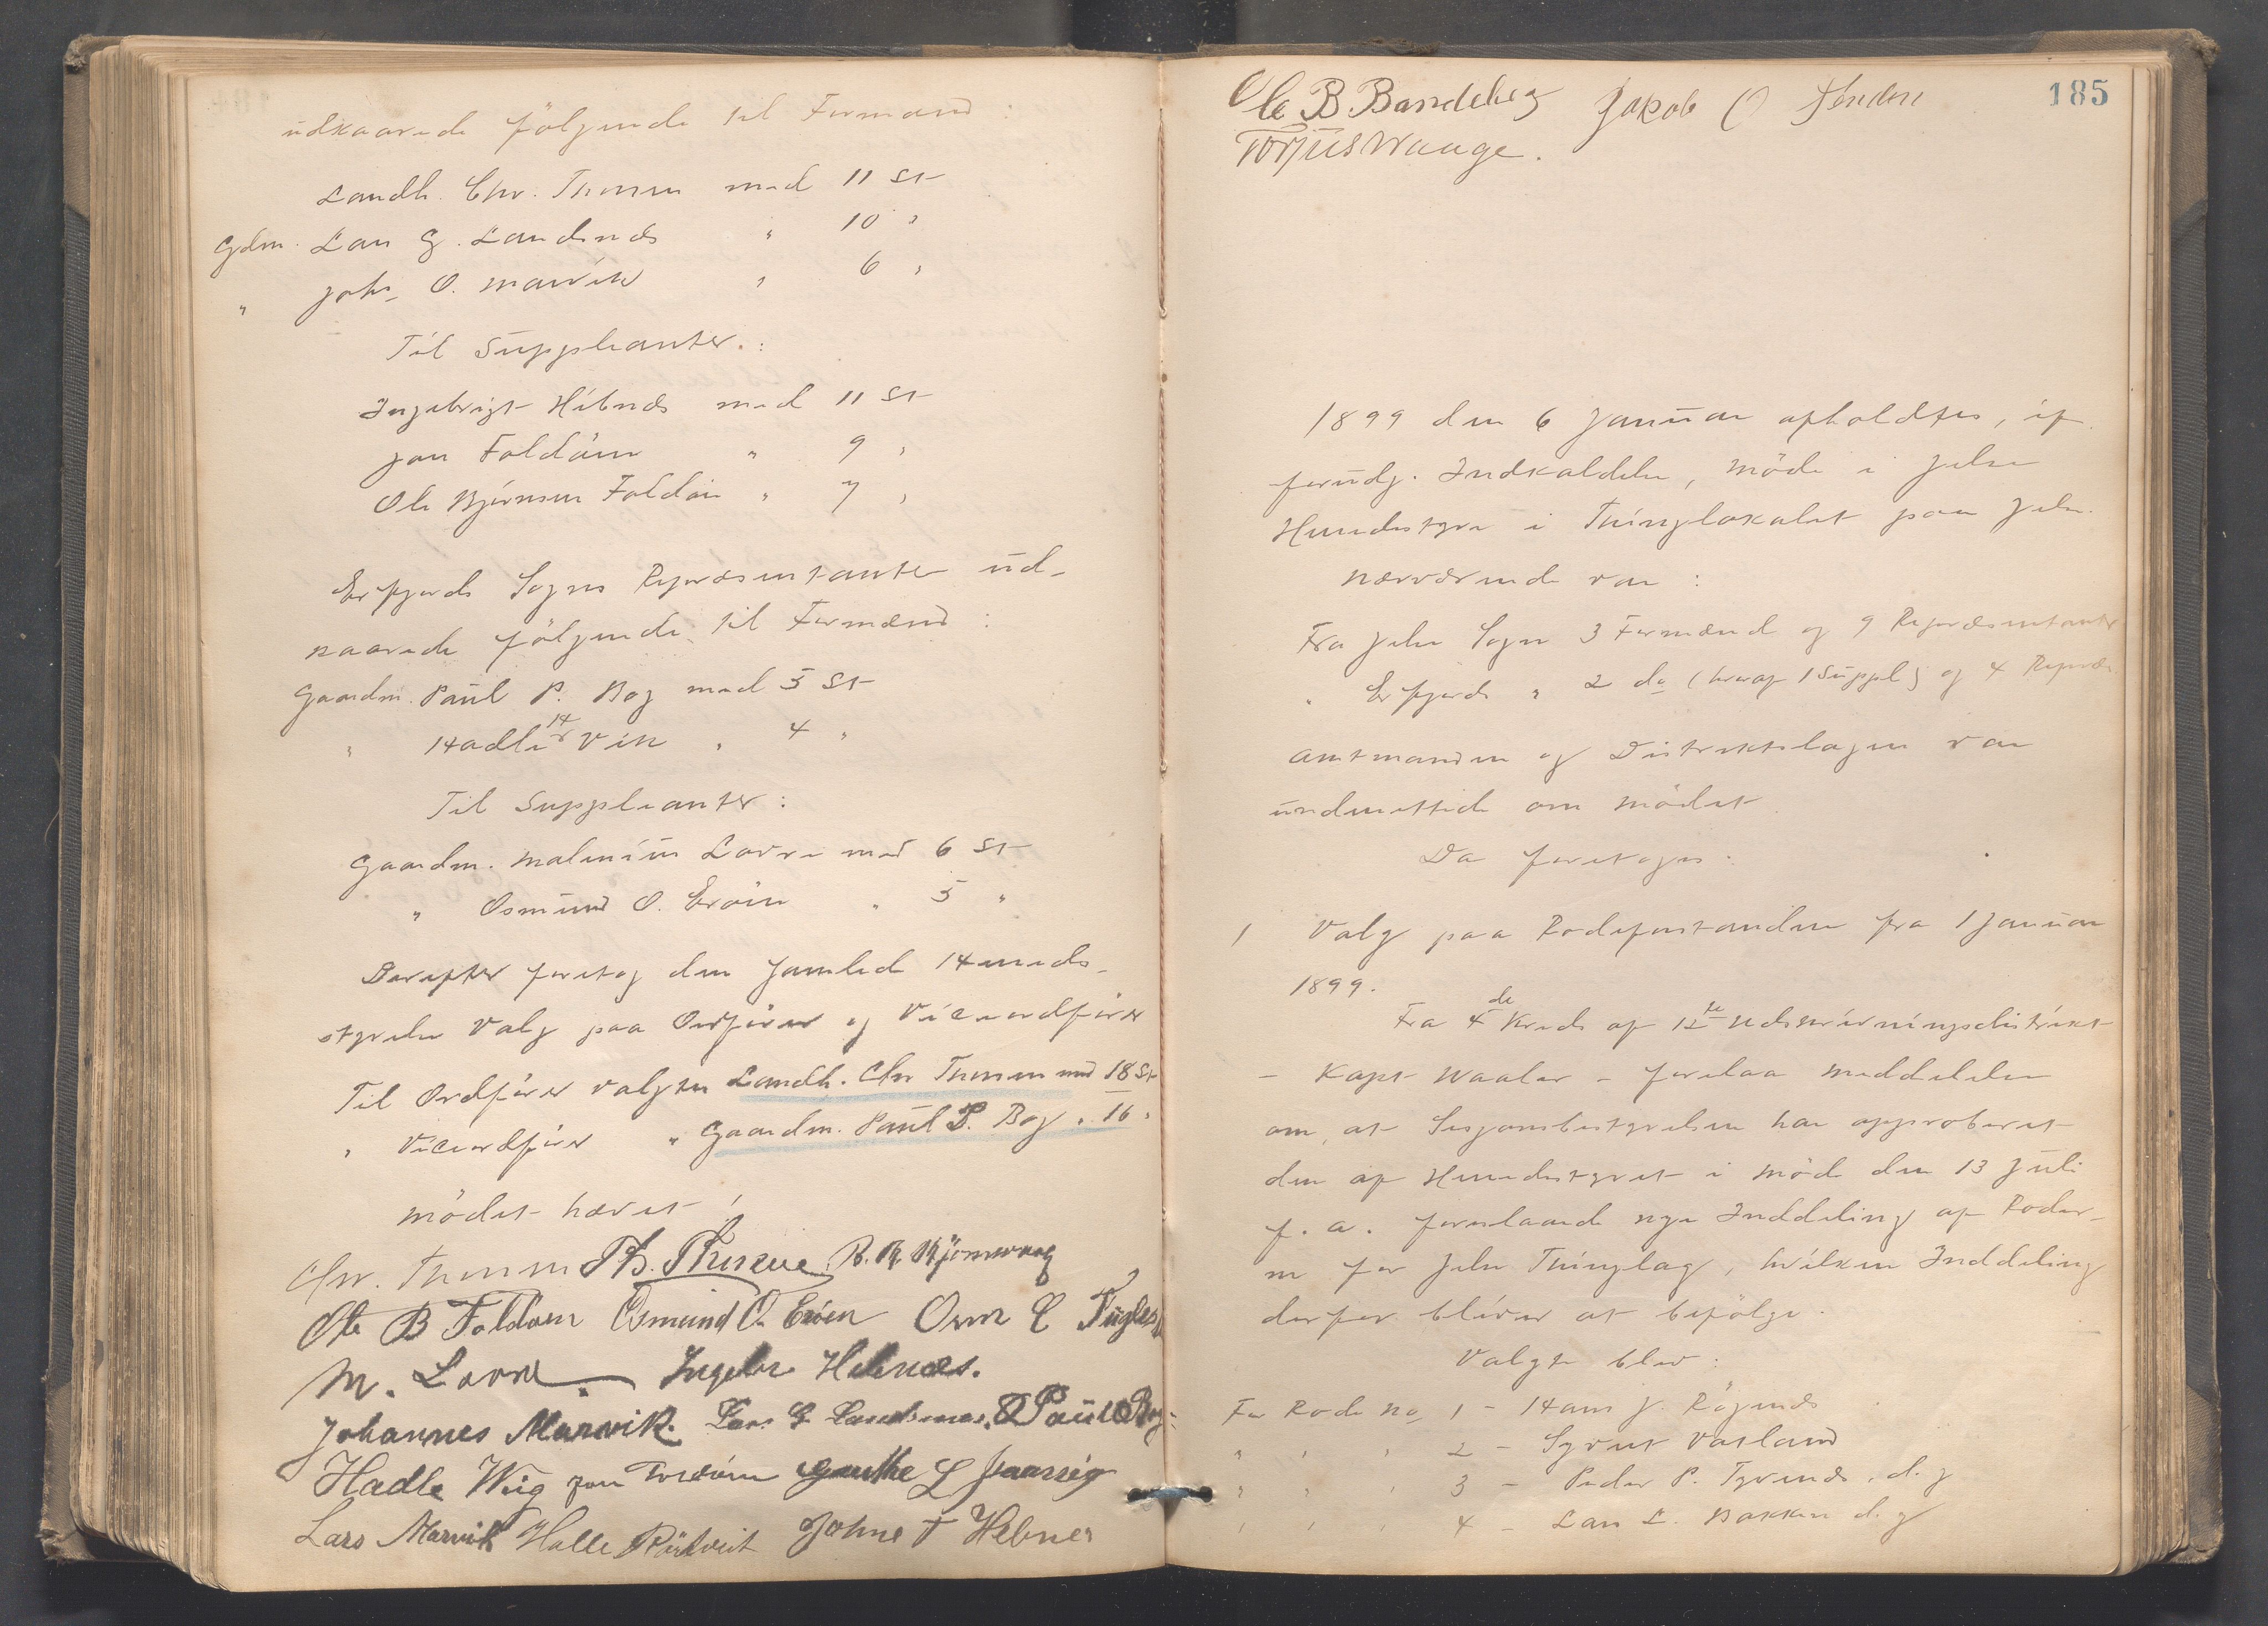 udkaarede følgende til Formænd :
Landh. Chr. Thorsen med 11 St
Gdm. Lars G. Landsnæs " 10 "
" Johs. O. Marvik " 6 "
Til Suppleanter. :
Ingebrigt Hebnæs med 11 St
Jon Foldøen " 9 "
Ole Bjørnsen Foldøen " 7 "
Erfjords Sogns Repræsentanter ud-
kaarede følgende til Formænd :
Gaardm. Paul P. Bog med 5 St
" Hadle H Vik " 4 "
Til Suppleanter :
Gaardm. Malenius Lovra med 6 St
" Osmund O. Erøen " 5 "
Derefter foretog den samlede Herreds-
styrelse Valg paa Ordfører og Viceordfører
Til Ordfører valgtes Landh. Chr Thorsen med 18 St
" Viceordfører " Gaardm. Paul P. Bog " 16 "
Mødet hævet !
Chr. Thorsen
Ole B Foldøen Osmund O. Erøen
M. Lovra. Ingebr Hebnæs.
Johannes Marvik. Lars G Landsnæs. Paul P Bog
Hadle Wiig Jon Foldøen Gauthe L
Lars Marvik Halle Johne T Hebnes
185
Ole B Bandeberg Jakob O
Torjus Waage.
1899 den 6 Januar afholdtes, if.
forudg. Indkaldelse, Møde i Jelse
Herredsstyre i Thinglokalet paa Jelse.
Nærværende var :
Fra Jelse Sogn 3 Formænd og 9 Repræsentanter
" Erfjords " 2 do (hvoraf 1 Suppl) og 4 Repræs.
Amtmanden og Distriktslægen var
underrettede om Mødet
Da foretoges :
1 Valg paa Rodeforstandere fra 1 Januar
1899.
Fra 4de Kreds af 12te Udskrivningsdistrikt
- Kapt Waaler - forelaa Meddelelse
om, at Sessionsbestyrelsen har approberet
den af Herredsstyret i Møde den 13 Juli
f. a. foreslaaede nye Inddeling af Roder-
ne for Jelse Thinglag, hvilken Inddeling
derfor bliver at befølge.
Valgte blev :
For Rode No 1 - Hans J. Røgenæs
" " " 2 - Syvert Vatland
" " " 3 - Peder P. Tyvenæs, d. y
" " " 4 - Lars L. Bakken d. y